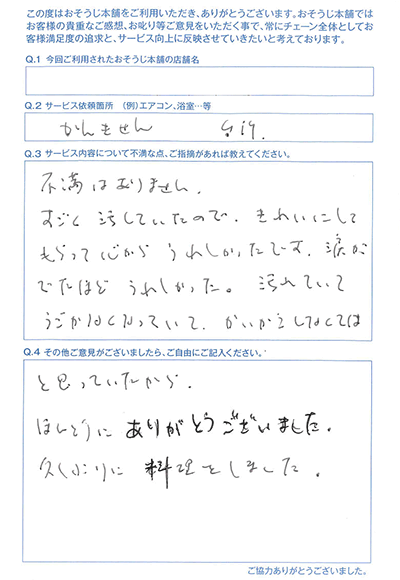 この度はおそうじ本舗をご利用いただき、ありがとうございます。おそうじ本舗では
お客様の貴重なご感想、お叱り等ご意見をいただく事で、常にチェーン全体としてお
客様満足度の追求と、サービス向上に反映させていきたいと考えております。
Q.1 今回ご利用されたおそうじ本舗の店舗名
Q.2 サービス依頼箇所 (例)エアコン、浴室…等
かんきせん
Q.3 サービス内容について不満な点、ご指摘があれば教えてください。
不満はありません。
すごく汚していたので、きれいにして
もらって心からうれしかったです。涙が
でたほどうれしかった。汚れていて
うごかなくなっていて、かいかえしなくては
Q.4 その他ご意見がございましたら、ご自由にご記入ください。
と思っていたから。
ほんとうにありがとうございました。
久しぶりに料理をしました。
ご協力ありがとうございました。